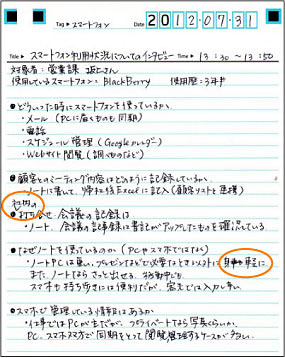 Tag ▶ スマートフォン
DATE 2012.07.31
Title ▶ スマートフォン利用状況についてのインタビュー Time ▶ 13:30 〜 13:50
対象者：営業課 坂上さん
使用しているスマートフォン：BlackBerry 使用歴：3年半
●どういった時にスマートフォンを使っているか。
・メール（PCに届くものも同期）
・電話
・スケジュール管理（Googleカレンダー）
・Webサイト閲覧（調べものなど）
●顧客とのミーティング内容はどのように記録しているか。
・ノートに書いて、帰社後Excelに記入（顧客リストと連携）
社内の
●打ち合せ・会議の記録は
・ノート、会議の記事録は書記がアップしたものを確認している。
●なぜノートを使っているのか（PCやスマホではなく）
・ノートPCは重い。プレゼンなどで必要なとき以外は身軽に
また、ノートならさっと出せる。
スマホも持ち歩きには便利だが、
●スマホで管理している情報はあるか
・仕事ではPCが主だが、プライベートなら写真くらいか。
PC、スマホ双方で同期をとって閲覧